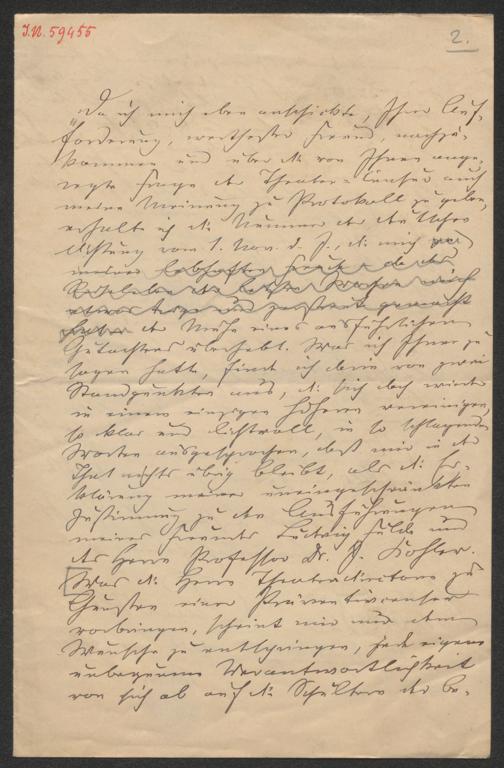 I.N. 59455
2.
"Da ich mich eben anschickte, Ihrer Auf-
forderung, werthester Freund, nachzu-
kommen und über die von Ihnen ange-
regte Frage der Theater-Censur auch
meine Meinung zu Protokoll zu geben,
erhalte ich die Nummer der deutschen
Dichtung vom 1. Nov. d. J., die mich
meiner lebhaften Freude
letzten
etwas und gemacht
habe der Mühe eines ausführlichen
Gutachtens überhebt. Was ich Ihnen zu
sagen hatte, finde ich darin von zwei
Standpunkten aus, die sich doch wieder
in einem einzigen höheren vereinigen,
so klar und lichtvoll, in so schlagenden
Worten ausgesprochen, daß mir in der
That nichts übrig bleibt, als die Er-
klärung meiner uneingeschränkten
Zustimmung zu den Ausführungen
meines Freundes Ludwig Fulda und
des Herrn Professor Dr. J. Kohler.
Was die Herren Theaterdirectoren zu
Gunsten einer Präventivcensur
vorbringen, scheint mir nur dem
Wunsche zu entspringen, jede eigene
unbequeme Verantwortlichkeit
von sich ab auf die Schultern der be-